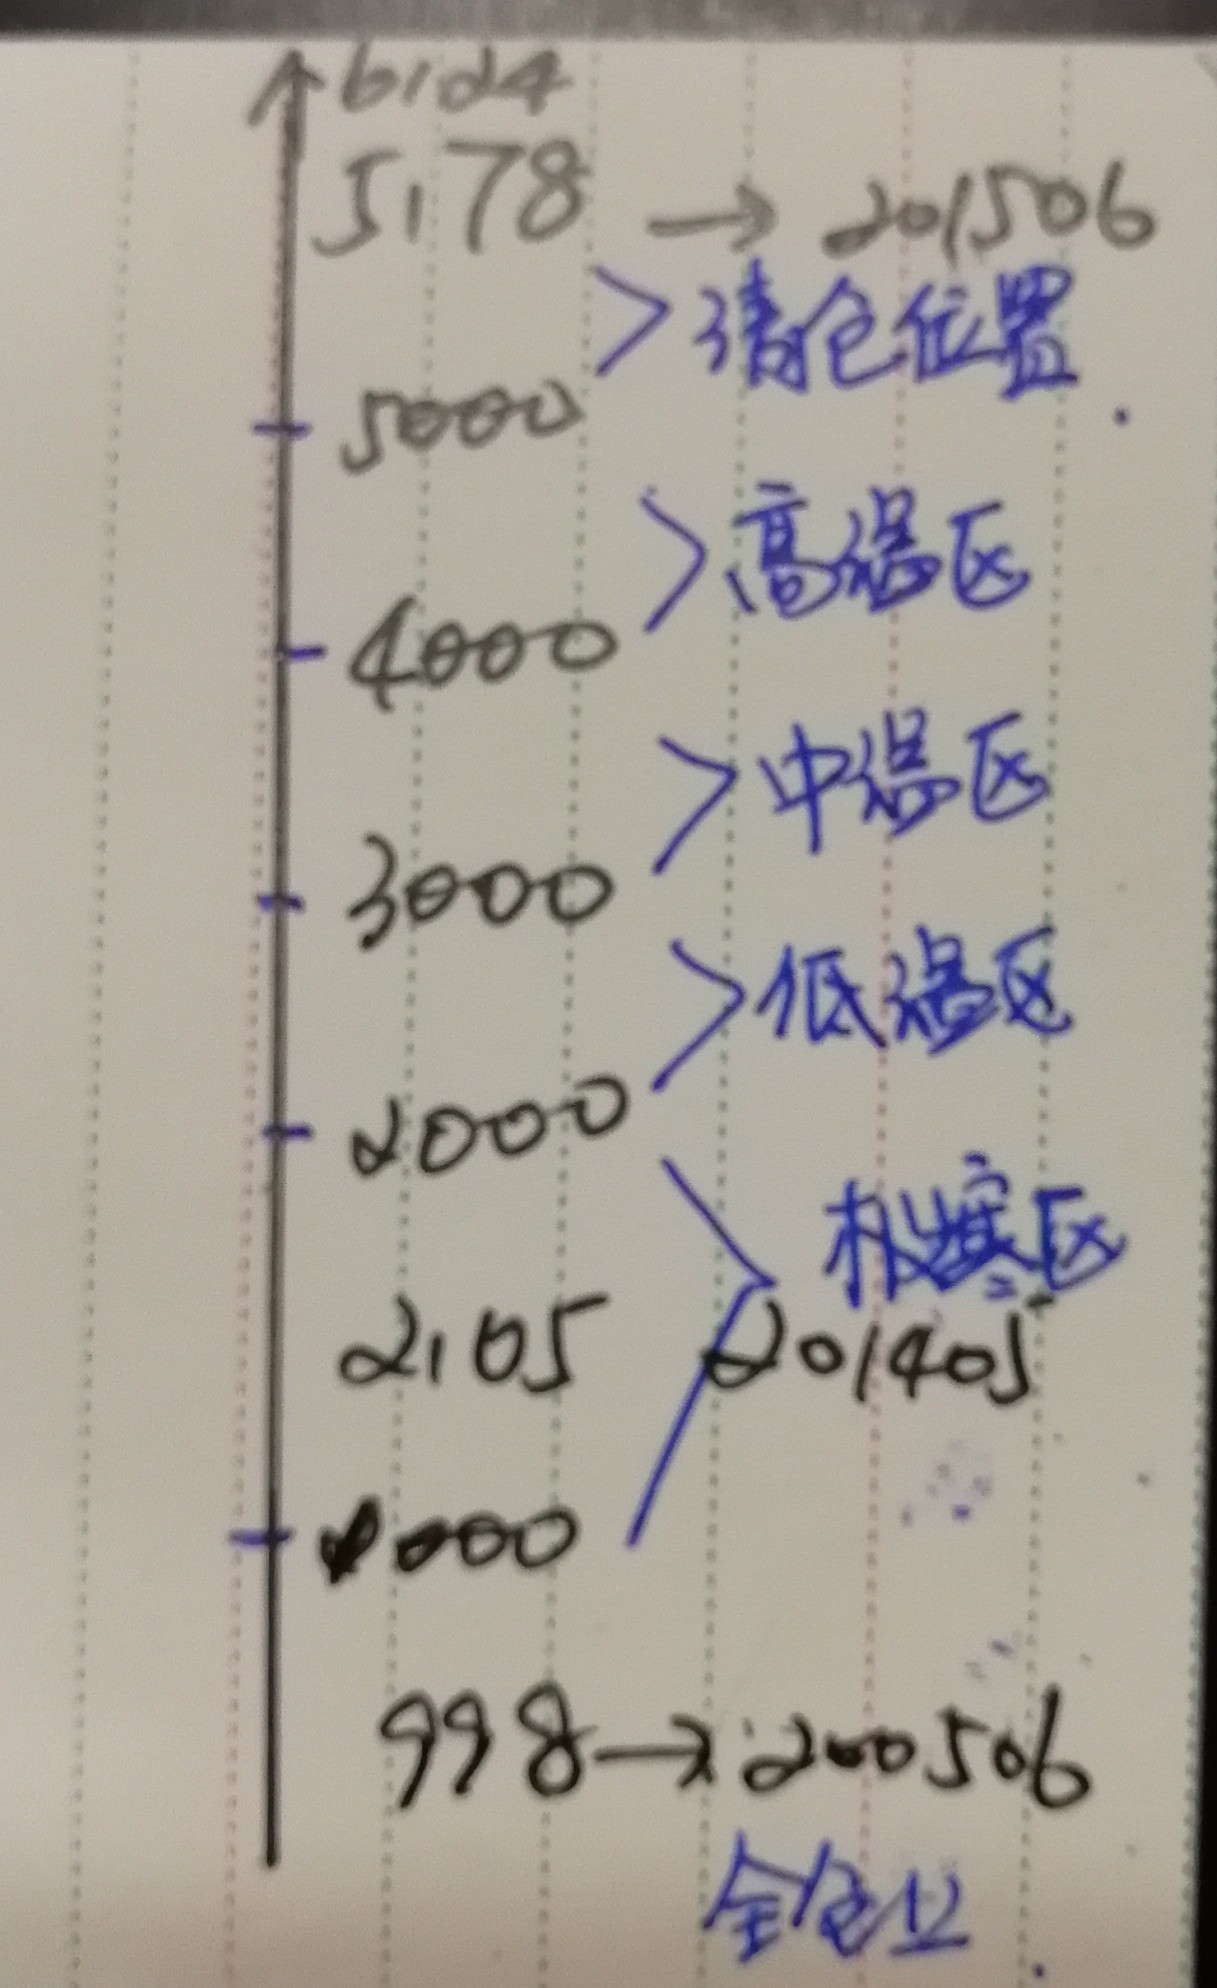 6124
5178 → 201506
清仓位置
5000
高温区
4000
中温区
3000
低温区
2000
极寒区
2105 201405
1000
998→200506
全仓位